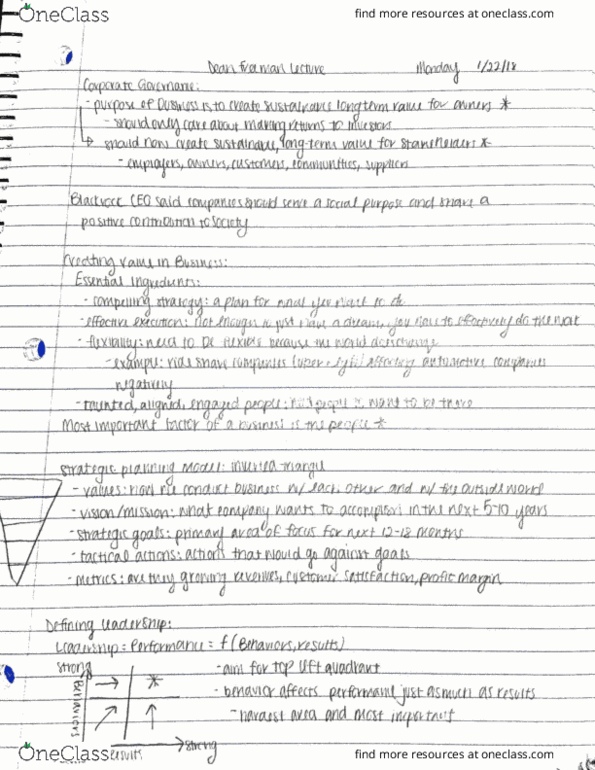 OneClass
find more resources at oneclass.com
Dean Freeman Lecture Monday 1/22/18
Corporate Governance:
- purpose of business is to create sustainable long term value for owners *
- should only care about making returns to investors
→ should now create sustainable, long-term value for stakeholders *
- employers, owners, customers, communities, suppliers
Blackrock CEO said companies should serve a social purpose and make a
positive contribution to society
Creating Value in Business:
Essential Ingredients:
- compelling strategy: a plan for what you want to do
- effective execution: not enough to just have a dream, you have to effectively do the work
- flexibility: need to be flexible because the world does change
- example: ride share companies (uber, lyft) effecting automotive companies
negatively
- talented, aligned, engaged people: people want to be there
Most important factor of a business is the people *
Strategic planning Model: inverted triangle
- values: how we conduct business w/ each other and w/ the outside world
- vision/mission: what company wants to accomplish in the next 5-10 years
- strategic goals: primary area of focus for next 12-18 months
- tactical actions: actions that would go against goals
- metrics: are they growing revenues, customer satisfaction, profit margin
Defining Leadership:
Leadership = Performance = f (Behaviors, results)
strong
Behaviors
*
- aim for top left quadrant
- behavior affects performance just as much as results
- hardest area and most important
results → strong
OneClass
find more resources at oneclass.com